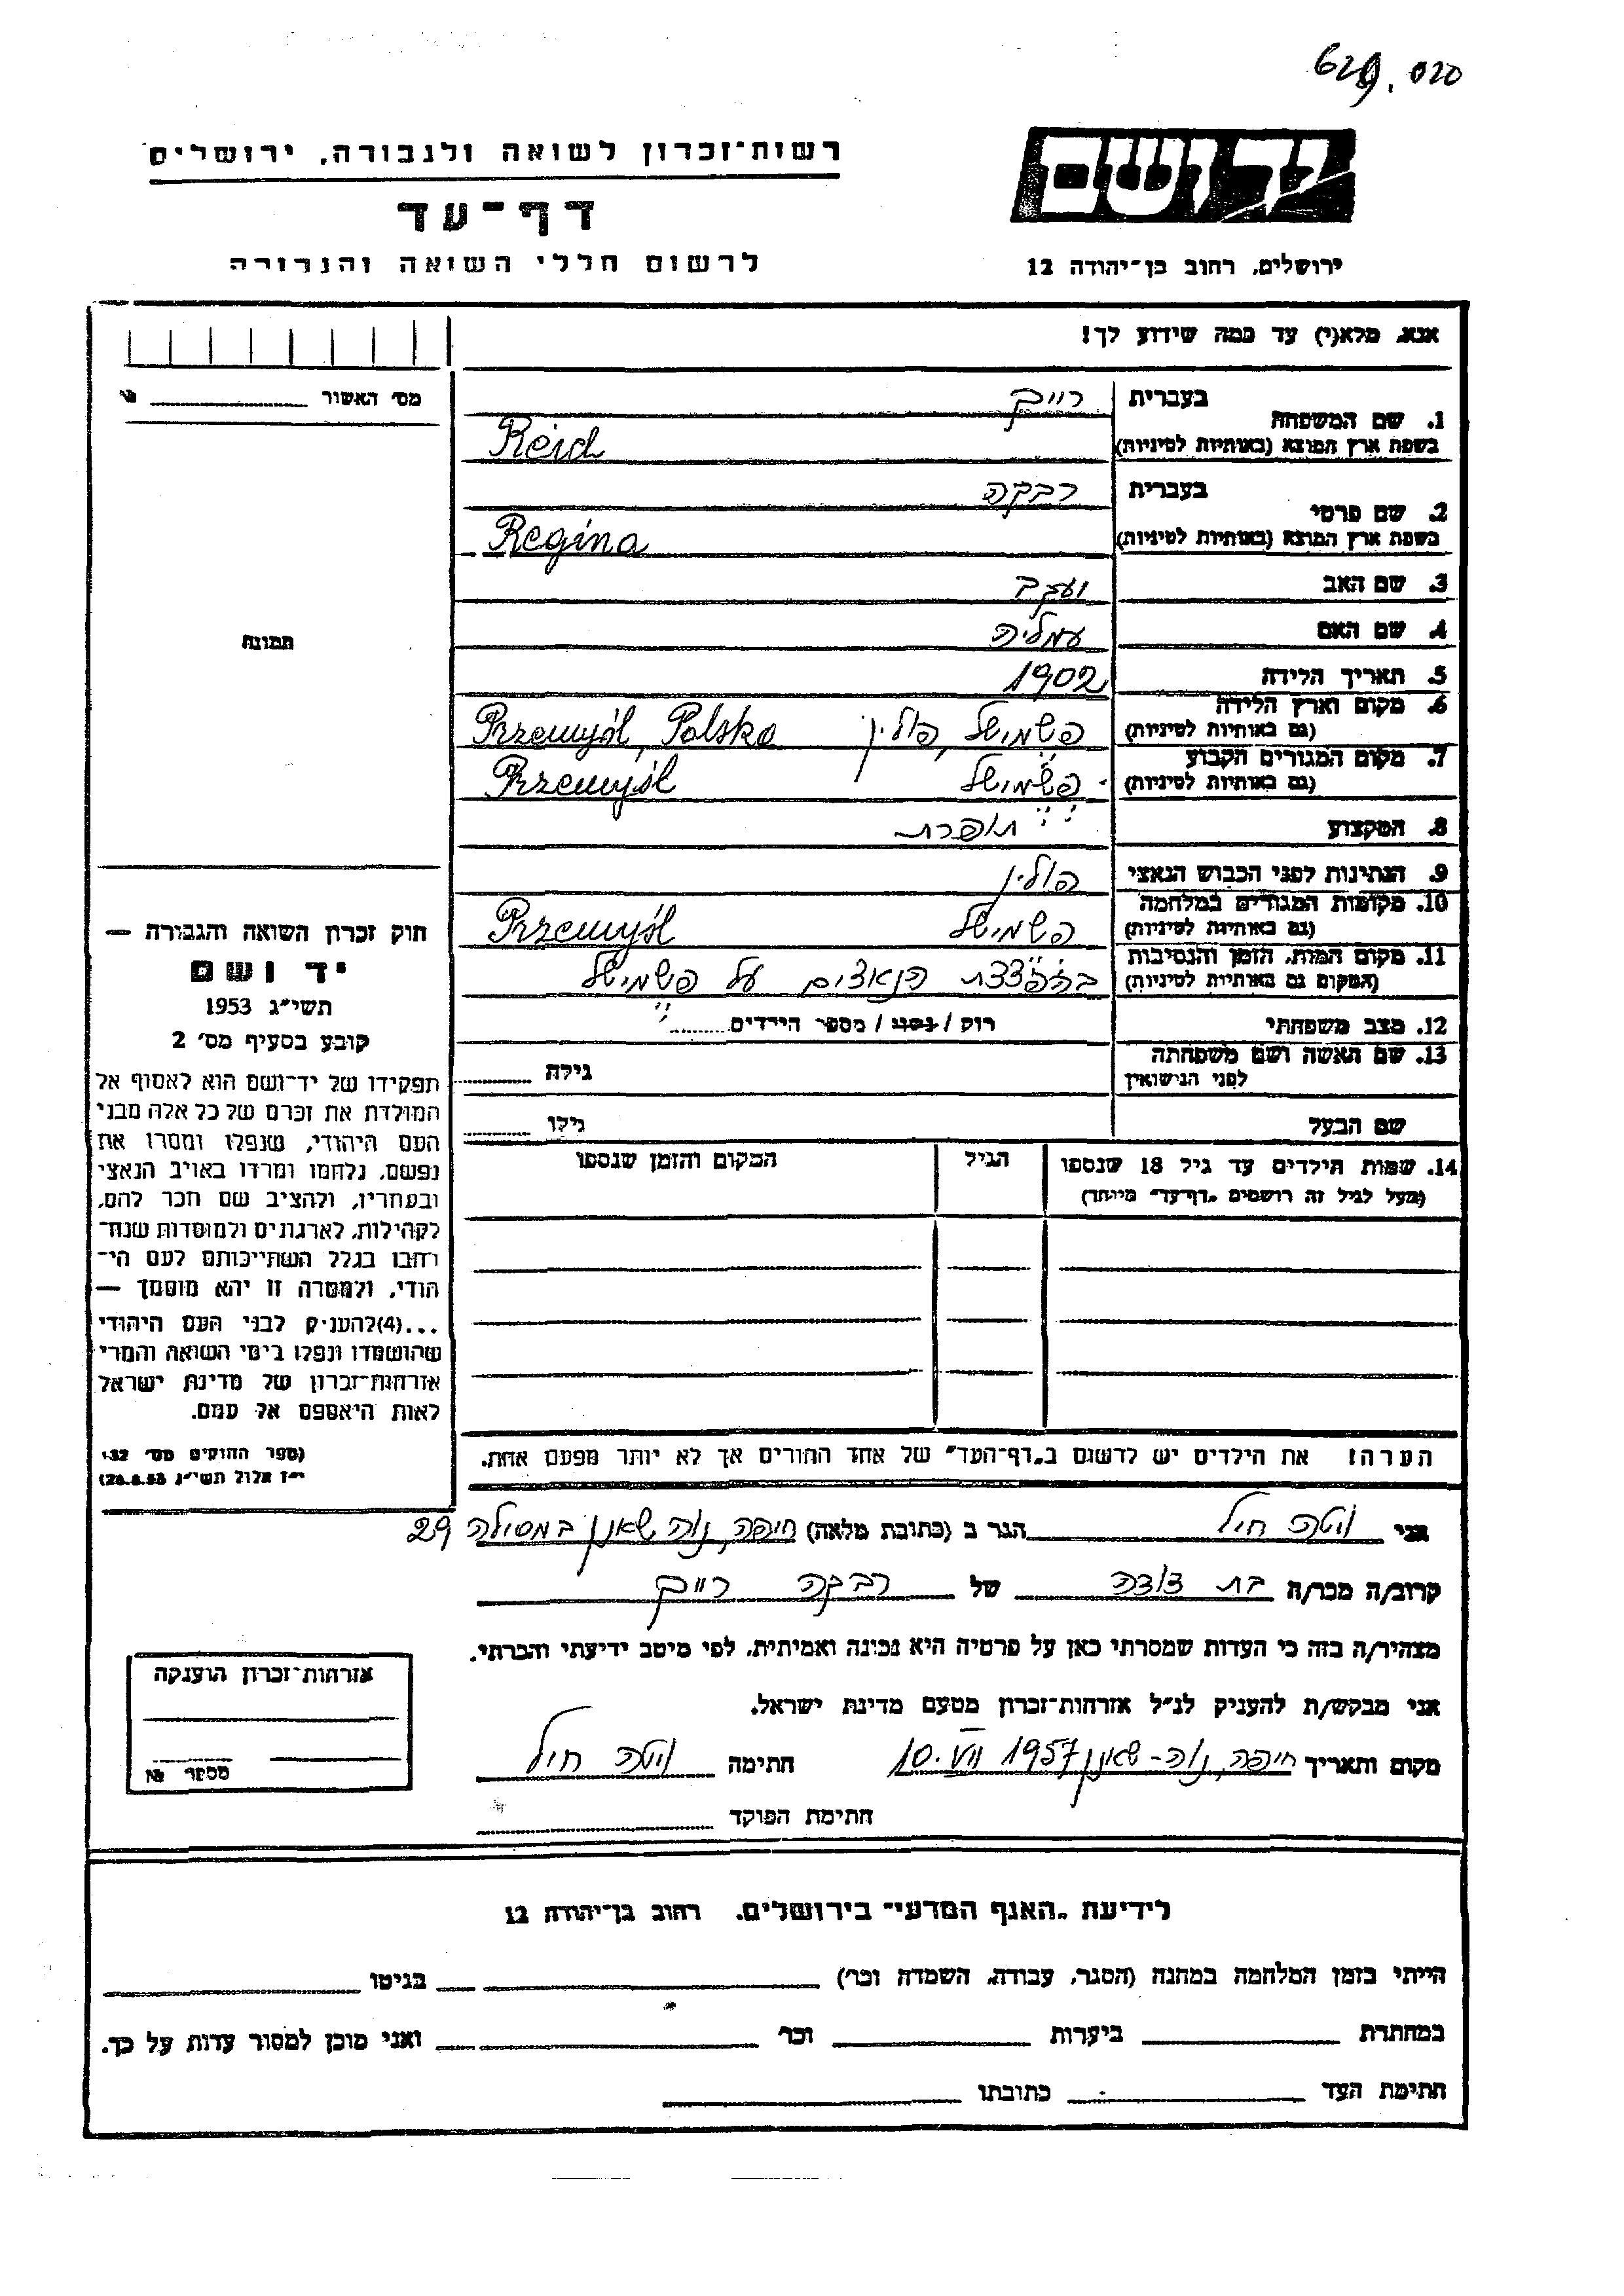 629.020
רשות־זכרון לשואה ולגבורה, ירושלים
יד ושם
דף־עד
לרשום חללי השואה והגבורה
ירושלים, רחוב בן־יהודה 12
אנא, מלא(י) עד כמה שידוע לך!
מס׳ האשור №
1. שם המשפחה בעברית רייך
בשפת ארץ המוצא (באותיות לטיניות) Reich
2. שם פרטי בעברית רבקה
בשפת ארץ המוצא (באותיות לטיניות) Regina
3. שם האב יעקב
4. שם האם עמליה
תמונה
5. תאריך הלידה 1902
6. מקום וארץ הלידה (גם באותיות לטיניות) פשמישל, פולין Przemyśl, Polska
7. מקום המגורים הקבוע (גם באותיות לטיניות) פשמישל Przemyśl
8. המקצוע תופרת
9. הנתינות לפני הכבוש הנאצי פולין
10. מקומות המגורים במלחמה (גם באותיות לטיניות) פשמישל Przemyśl
11. מקום המות, הזמן והנסיבות (המקום גם באותיות לטיניות) בהפצצת הנאצים על פשמישל
12. מצב משפחתי רוק / נשוי / מספר הילדים
13. שם האשה ושם משפחתה לפני הנישואין גילה
שם הבעל גילו
14. שמות הילדים עד גיל 18 שנספו הגיל המקום והזמן שנספו
(מעל לגיל זה רושמים "דף־עד" מיוחד)
הערה: את הילדים יש לרשום ב"דף־העד" של אחד ההורים אך לא יותר מפעם אחת.
חוק זכרון השואה והגבורה —
יד ושם
תשי״ג 1953
קובע בסעיף מס׳ 2
תפקידו של יד־ושם הוא לאסוף אל
המולדת את זכרם של כל אלה מבני
העם היהודי, שנפלו ומסרו את
נפשם, נלחמו ומרדו באויב הנאצי
ובעוזריו, ולהציב שם וזכר להם,
לקהילות, לארגונים ולמוסדות שנח־
רבו בגלל השתייכותם לעם הי־
הודי, ולמטרה זו יהא מוסמך —
...(4) להעניק לבני העם היהודי
שהושמדו ונפלו בימי השואה והמרי
אזרחות־זכרון של מדינת ישראל
לאות היאספם אל עמם.
(ספר החוקים מס׳ 132
י״ז אלול תשי״ג 28.8.53)
אני ויטה חיל הגר ב (כתובת מלאה) חיפה, נוה שאנן במסילה 29
קרוב/ה מכר/ה בת דודה של רבקה רייך
מצהיר/ה בזה כי העדות שמסרתי כאן על פרטיה היא נכונה ואמיתית, לפי מיטב ידיעתי והכרתי.
אני מבקש/ת להעניק לנ״ל אזרחות־זכרון מטעם מדינת ישראל.
מקום ותאריך חיפה, נוה־שאנן 10. VII 1957 חתימה ויטה חיל
חתימת הפוקד
אזרחות־זכרון הוענקה
מספר №
לידיעת "האגף המדעי" בירושלים, רחוב בן־יהודה 12
הייתי בזמן המלחמה במחנה (הסגר, עבודה, השמדה וכו׳) בגיטו
במחתרת ביערות וכו׳ ואני מוכן למסור עדות על כך.
חתימת העד כתובתו